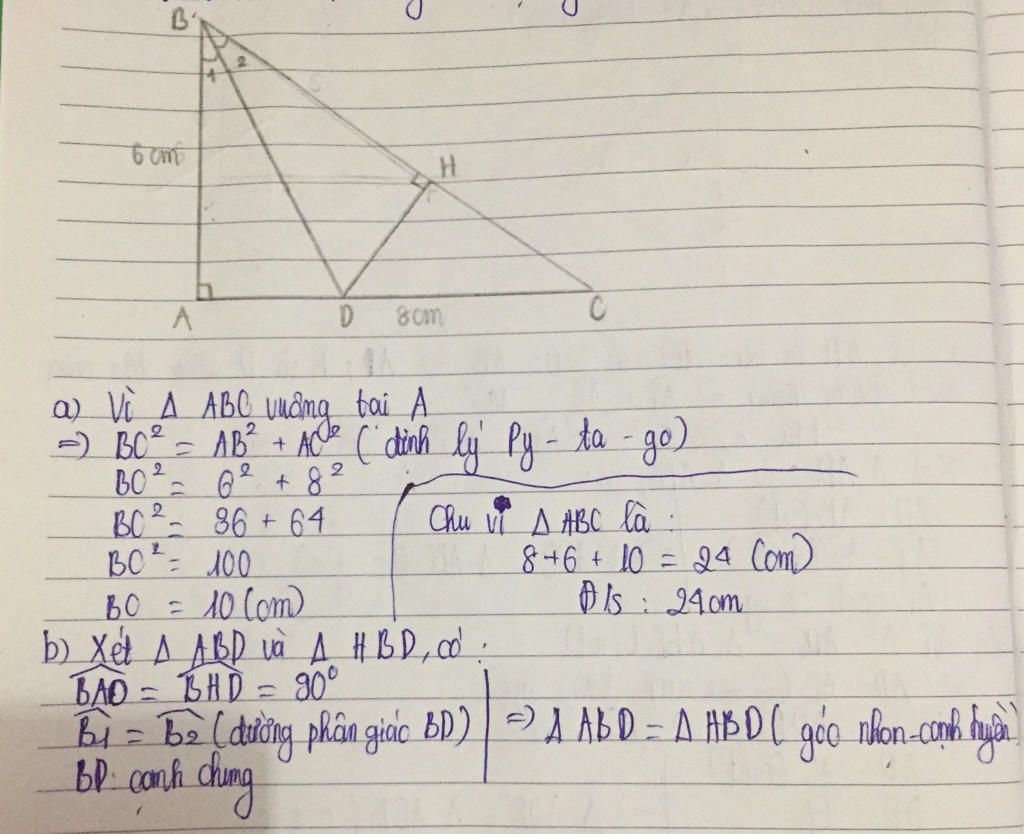 B
1 2
6cm
H
A D 8cm C
a) Vì Δ ABC vuông tại A
=> BC² = AB² + AC² (định lý Py - ta - go)
BC² = 6² + 8²
BC² = 36 + 64
BC² = 100
BC = 10 (cm)
Chu vi Δ ABC là :
8+6 + 10 = 24 (cm)
Đ/s : 24cm
b) Xét Δ ABD và Δ HBD, có :
BAD = BHD = 90°
B1 = B2 (đường phân giác BD)
BD: cạnh chung
=> Δ ABD = Δ HBD ( góc nhọn-cạnh huyền)